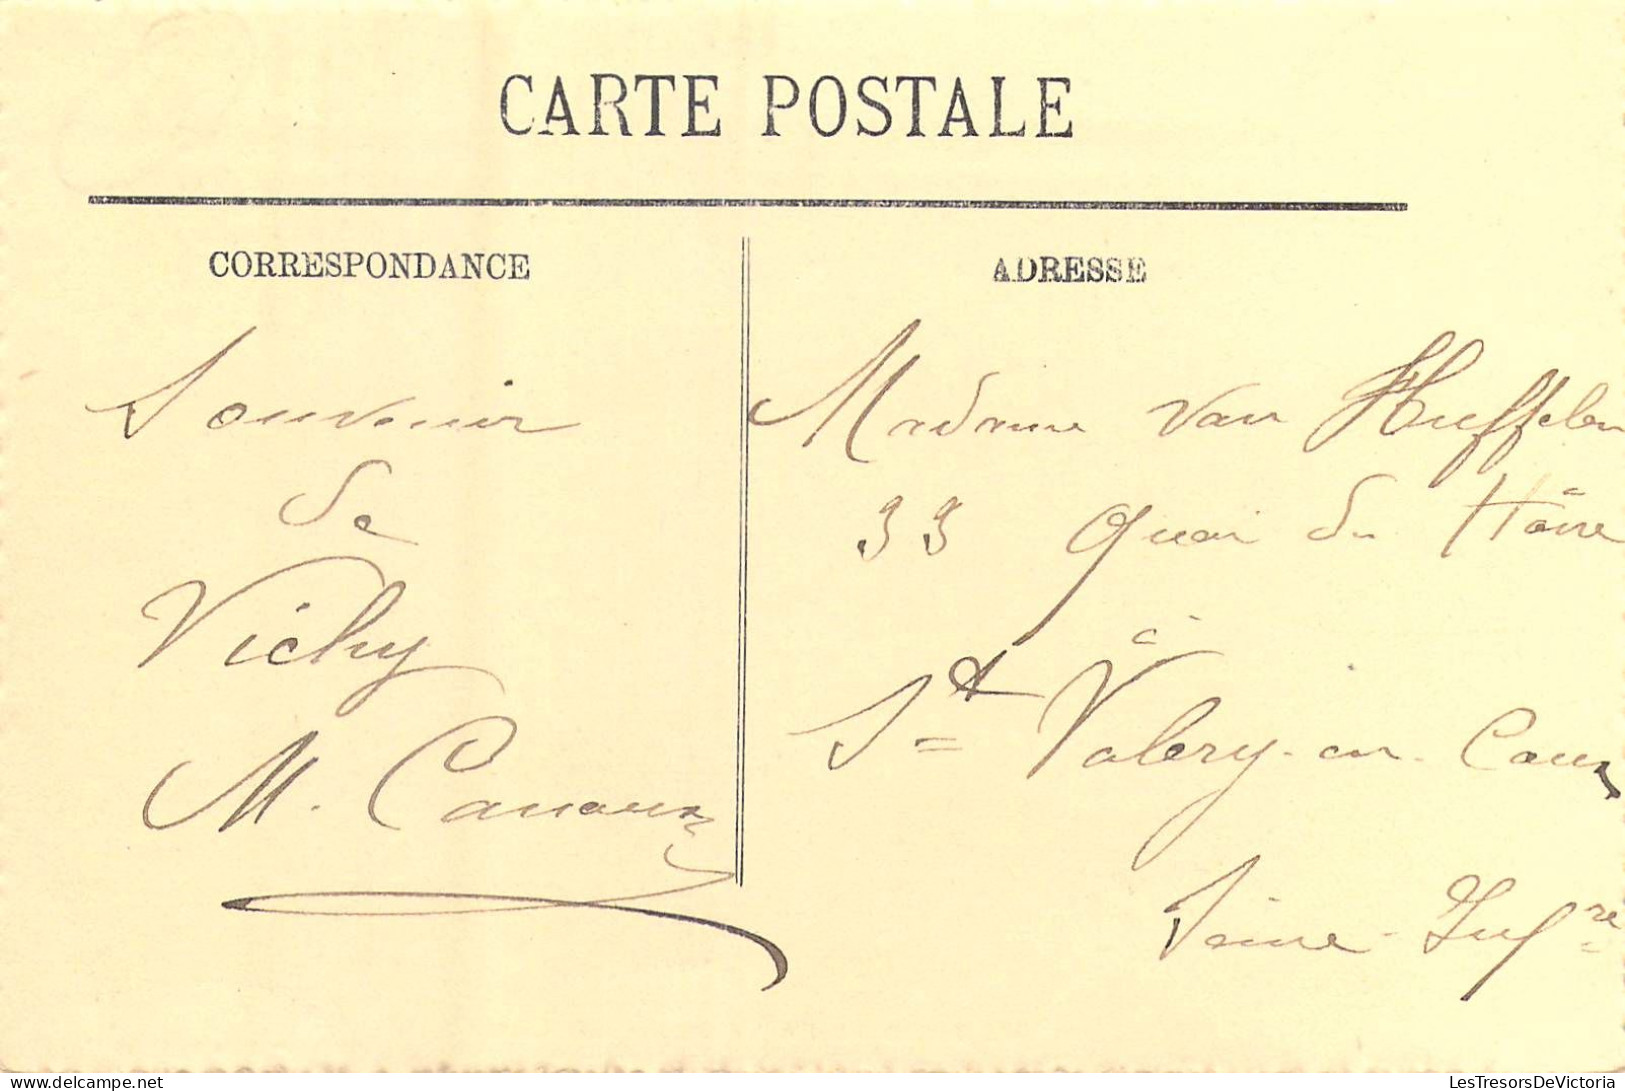 CARTE POSTALE
CORRESPONDANCE
Souvenir
de
Vichy
M.
ADRESSE
Madame van Huffelen
33 Quai du Hâvre
à
St Valery-en-Caux
Seine-Infre
LesTresorsDeVictoria